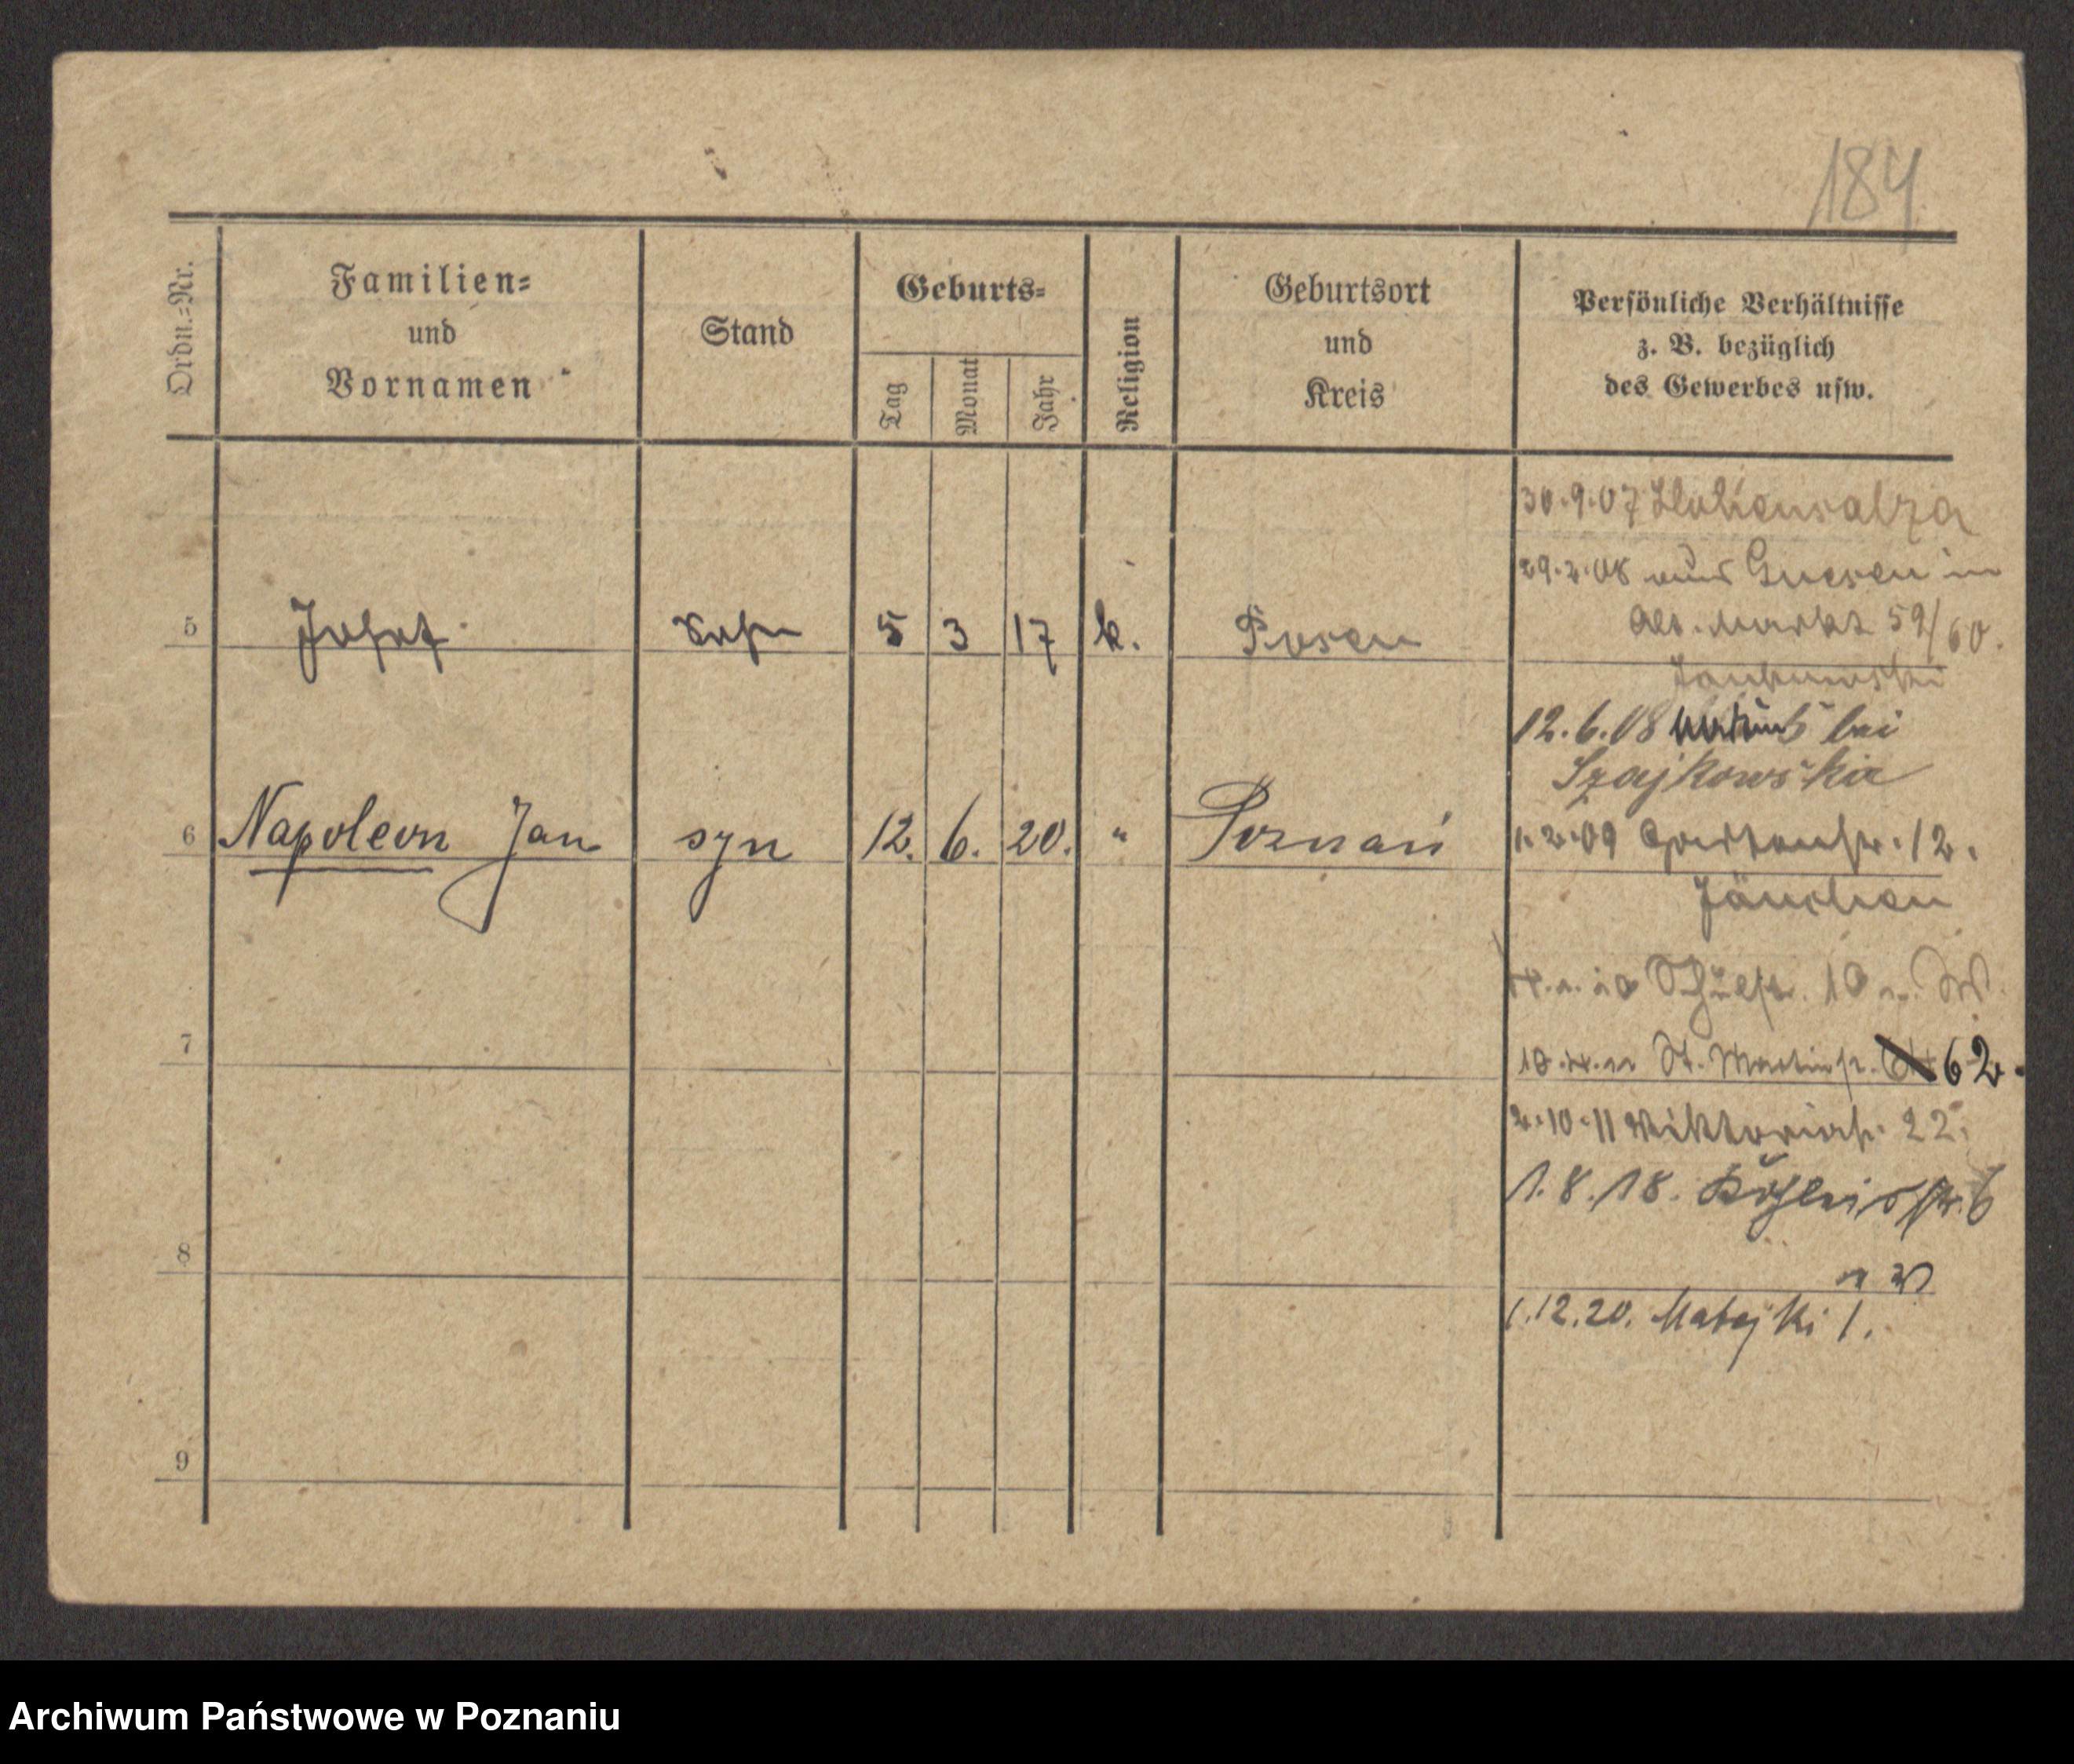 184
Ordn.-Nr.
Familien-
und
Vornamen
Stand
Geburts-
Tag
Monat
Jahr
Religion
Geburtsort
und
Kreis
Persönliche Verhältnisse
z. B. bezüglich
des Gewerbes usw.
30.9.07 Hohensalza
29.2.08 aus Gnesen in
Alt. Markt 59/60.
5 Josef Sohn 5 3 17 k. Posen
Jankowski
12.6.08 bei
Szajkowska
6 Napoleon Jan syn 12. 6. 20. " Poznań
1.2.09 Gartenstr. 12.
Jänchen
10
7
St. Martinstr. 62.
2.10.11 Viktoriastr. 22.
1.8.18. str. 6
8
1.12.20. Matejki 1.
9
Archiwum Państwowe w Poznaniu